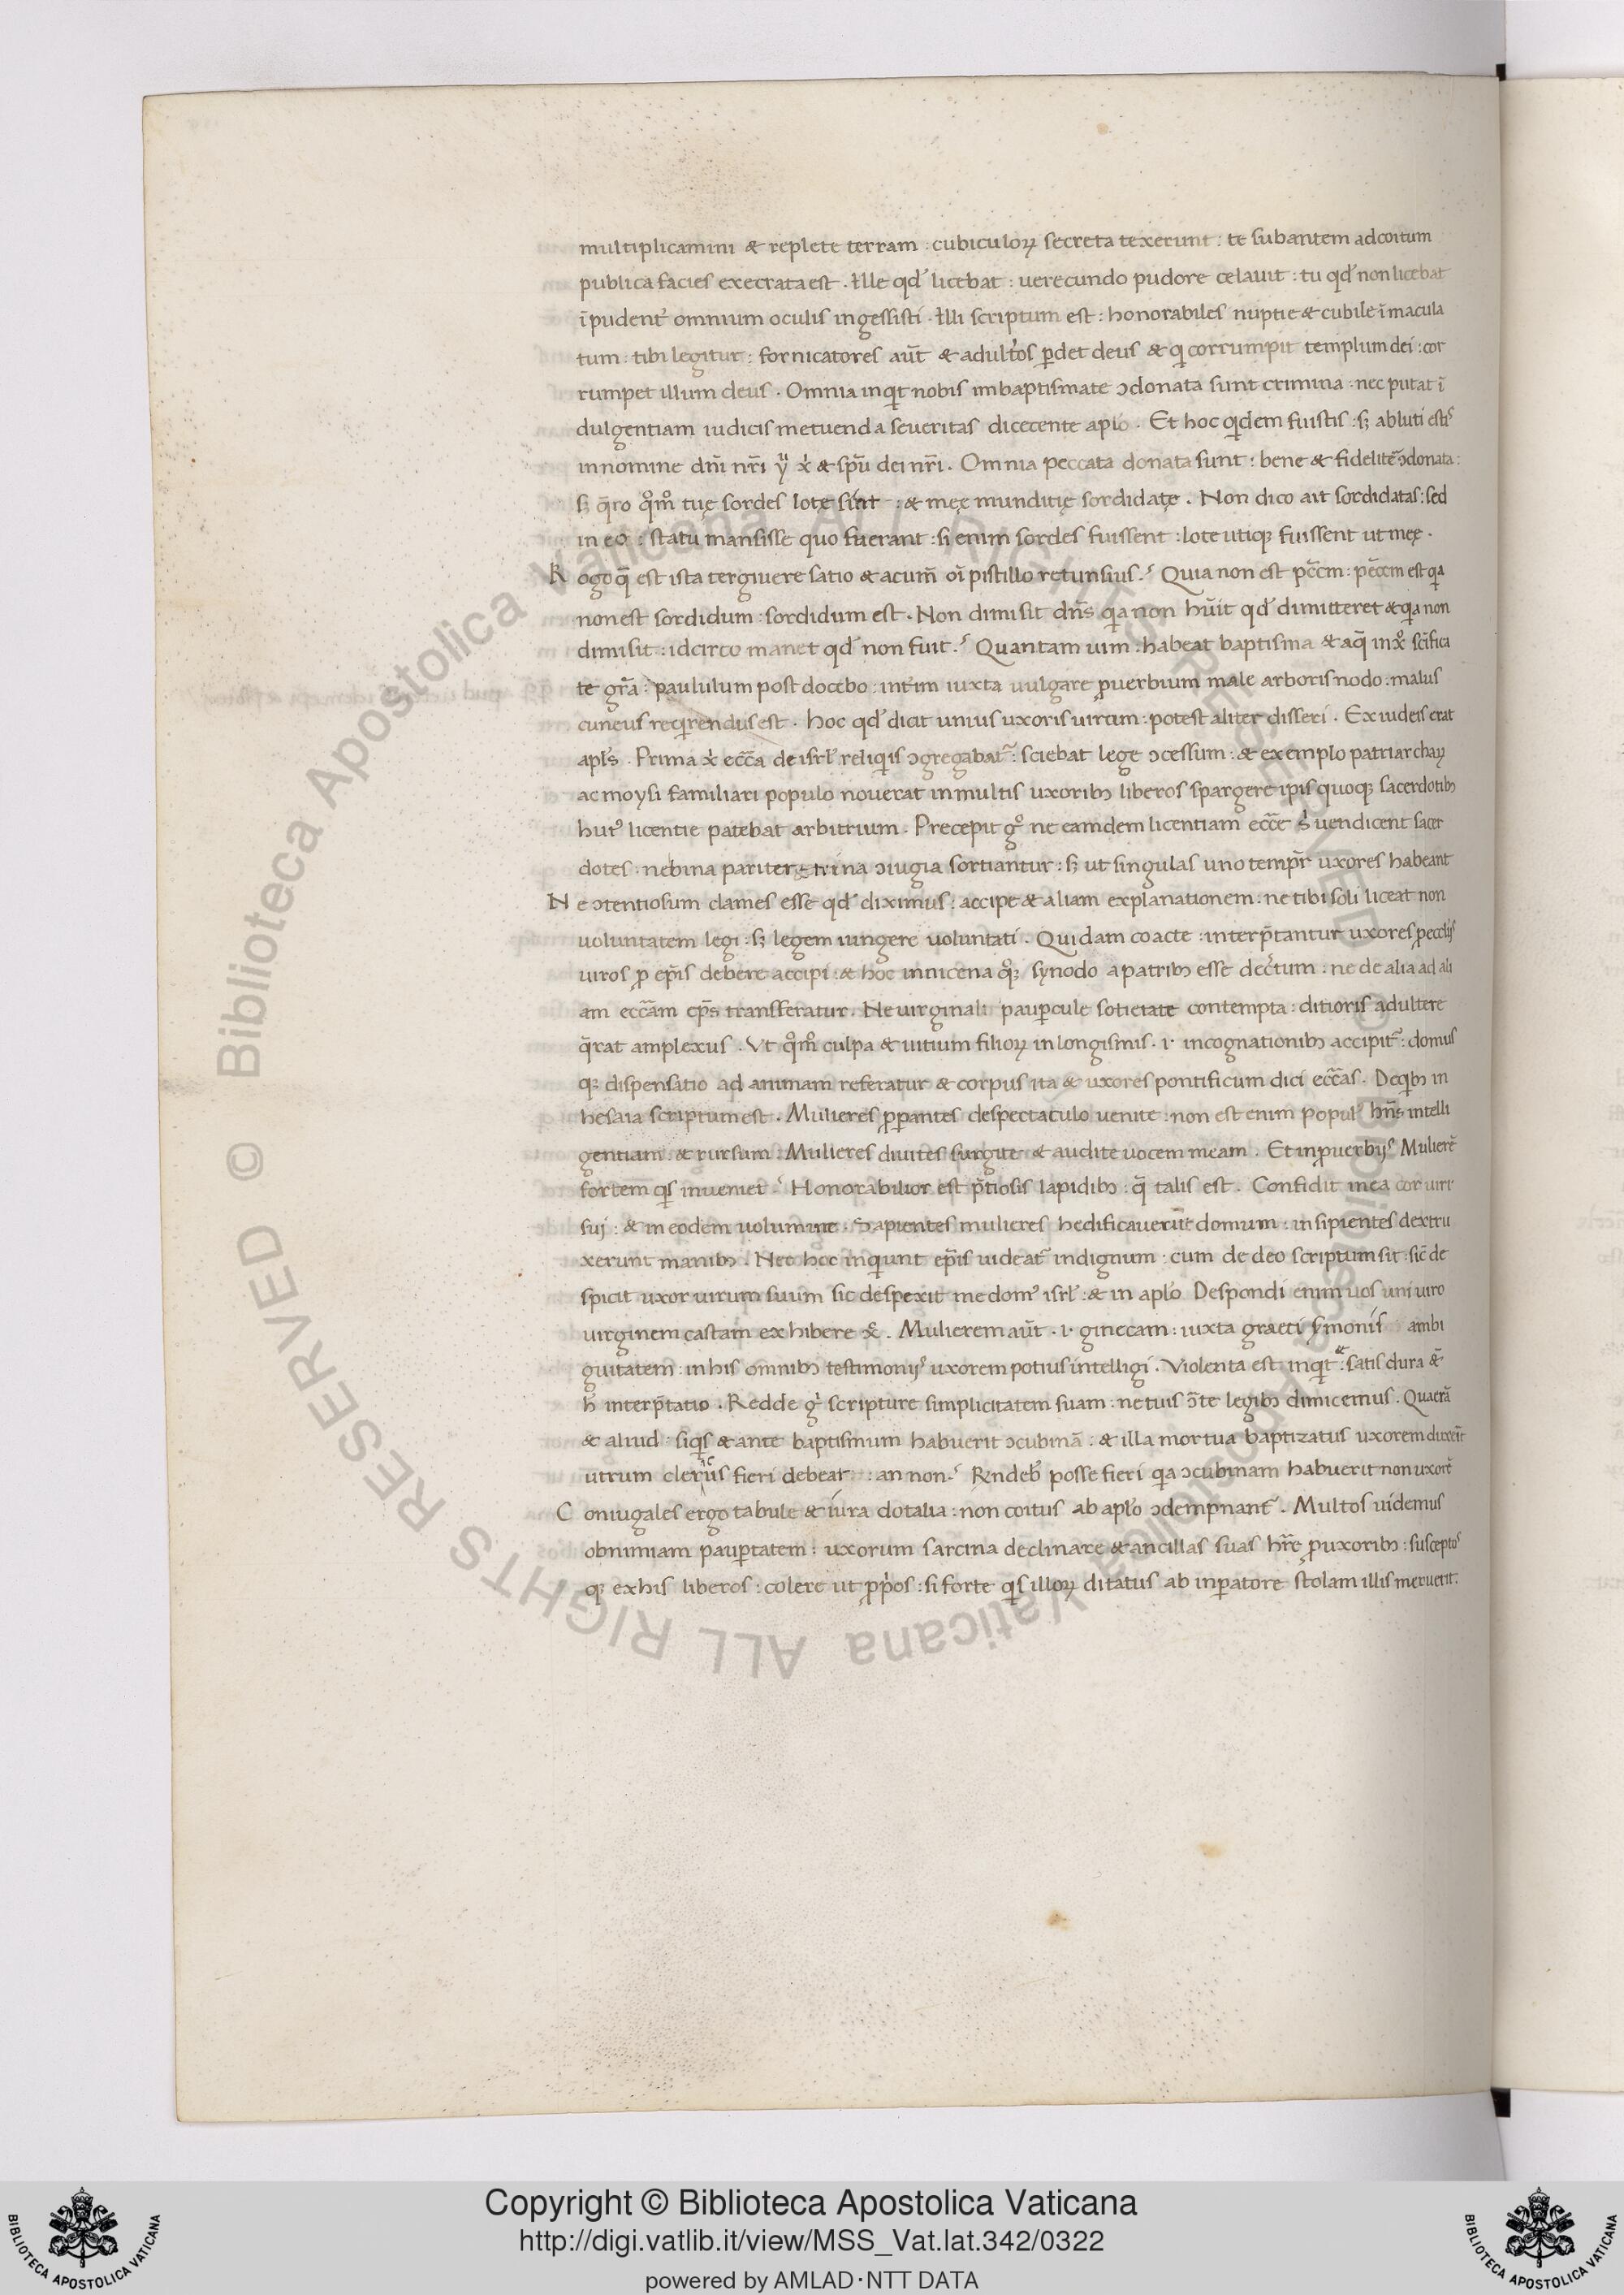 multiplicamini & replete terram : cubiculoꝝ secreta texerunt : te subantem adcoitum
publica facies execrata est . Ille qđ licebat : uerecundo pudore celauit : tu qđ non licebat
īpudent᷒ omnium oculis ingessisti . Illi scriptum est : honorabiles nuptie & cubile īmacula
tum : tibi legitur : fornicatores aūt & adult᷒os ꝑdet deus & qi corrumpit templum dei : cor
rumpet illum deus . Omnia inqit nobis imbaptismate ɔdonata sunt crimina : nec putat ī
dulgentiam iudicis metuenda seueritas dicecente aplo . Et hoc qidem fuistis : sꝫ abluti estis
in nomine dn̄i nr̄i & sp̄u dei nr̄i . Omnia peccata donata sunt : bene & fidelit̄ ɔdonata :
sꝫ q̄ro qͦm̊ tuę sordes lotę sint : & meę munditię sordidatę . Non dico ait sordidatas : sed
in eo : statu mansisse quo fuerant : si enim sordes fuissent : lote utiqꝫ fuissent ut meę .
R ogo q̄ est ista tergiuersatio & acum̄ oī pistillo retunsius . Quia non est pc̄cm : pec̄cm est qia
non est sordidum : sordidum est . Non dimisit dn̄s qia non hūit qđ dimitteret & qia non
dimisit : idcirco manet qđ non fuit . Quantam uim : habeat baptisma & aq̄ in xͦ sc̄ifica
te gr̄a : paululum post docebo : int᷒im iuxta uulgare ꝓuerbium male arboris nodo : malus
cuneus reqirendus est . Hoc qđ dicit unius uxoris uirum : potest aliter disseri . Ex iudeis erat
apl̄s . Prima xi ecc̄a de isrl̄ reliqis ɔgregabat᷒ : sciebat lege ɔcessum : & exemplo patriarchaꝝ
ac moysi familiari populo nouerat in multis uxoribꝫ liberos spargere ipis quoqꝫ sacerdotibꝫ
huiꝰ licentie patebat arbitrium . Precepit gͦ ne eamdem licentiam ecc̄e sͥ uendicent sacer
dotes : ne bina pariter & trina ɔiugia sortiantur : sꝫ ut singulas uno tempr̄ uxores habeant
N e ɔtentiosum clames esse qđ diximus : accipe & aliam explanationem : ne tibi soli liceat non
uoluntatem legi : sꝫ legem iungere uoluntati . Quidam coacte : interp̄tantur uxores ꝓ ecclijs
uiros ꝓ ep̄is debere accipi : & hoc in nicena qͦqꝫ synodo a patribꝫ esse dec᷒tum : ne de alia ad ali
am ecc̄am ep̄s transferatur . Ne uirginali pauꝑcule sotietate contempta : ditioris adultere
q̄rat amplexus . Vt qͦm̊ culpa & uitium filioꝝ in longismis . i . in cognationibꝫ accipit᷒ : domus
qꝫ dispensatio ad animam referatur & corpus ita & uxores pontificum dici ecc̄as . De qibꝫ in
hesaia scriptum est . Mulieres ꝓꝑantes despectaculo uenite : non est enim popul᷒ hn̄s intelli
gentiam : & rursum : Mulieres diuites surgite & audite uocem meam . Et in ꝓuerbijs Mulierē
fortem qis inueniet . Honorabilior est p̄tiosis lapidibꝫ : q̄ talis est . Confidit in ea cor uiri
sui : & in eodem uolumine . Sapientes mulieres hedificauerūt domum : insipientes dextru
xerunt manibꝫ . Nec hoc inqiunt ep̄is uideat᷒ indignum : cum de deo scriptum sit : sic̄ de
spicit uxor uirum suum sic despexit me domꝰ isrl̄ : & in aplo Despondi enim uos uni uiro
uirginem castam exhibere xͦ . Mulierem aūt . i . ginecam : iuxta graeci symonis ambi
guitatem : in his omnibꝫ testimonijs uxorem potius intelligi . Violenta est inqit : satis dura &
h̄ interp̄tatio . Redde gͥ scripture simplicitatem suam : ne tuis ɔ̄te legibꝫ dimicemus . Quaerā
& aliud : si qis & ante baptismum habuerit ɔcubinā : & illa mortua baptizatus uxorem duxerīt
utrum clericus fieri debeat : an non . Rn̄deb᷒ posse fieri qia ɔcubinam habuerit non uxorē
C oniugales ergo tabule & iura dotalia : non coitus ab aplo ɔdempnant᷒ . Multos uidemus
ob nimiam pauꝑtatem : uxorum sarcina declinare & ancillas suas hr̄e ꝓ uxoribꝫ : susceptos
qꝫ ex his liberos : colere ut ꝓpͥos : si forte qis illoꝝ ditatus ab inꝑatore stolam illis meruerit .
Copyright © Biblioteca Apostolica Vaticana
http://digi.vatlib.it/view/MSS_Vat.lat.342/0322
powered by AMLAD·NTT DATA
© Biblioteca Apostolica Vaticana ALL RIGHTS RESERVED
© Biblioteca Apostolica Vaticana ALL RIGHTS RESERVED
BIBLIOTECA APOSTOLICA VATICANA
BIBLIOTECA APOSTOLICA VATICANA